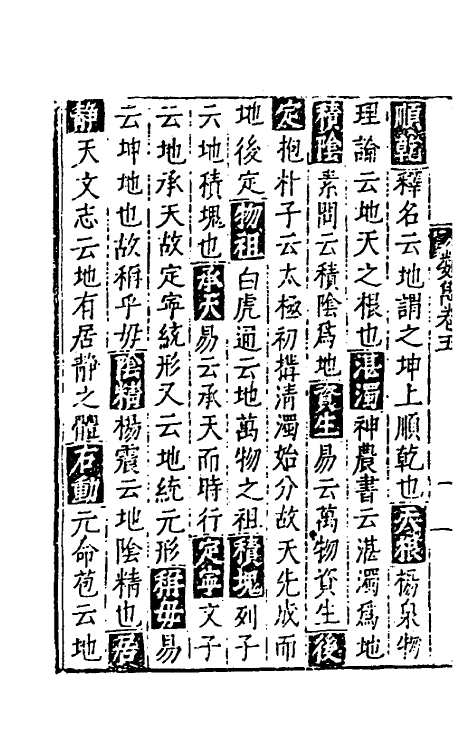 順乾釋名云地謂之坤上順乾也天根楊泉物
理論云地天之根也湛濁神農書云湛濁爲地
積陰素問云積陰爲地資生易云萬物資生後
定抱朴子云太極初搆清濁始分故天先成而
地後定物祖白虎通云地萬物之祖積塊列子
云地積塊也承天易云承天而時行定寧文子
云地承天故定寧統形又云地統元形稱毋易
云坤地也故稱乎毋陰精楊震云地陰精也居
靜天文志云地有居靜之體右動元命苞云地
卷五